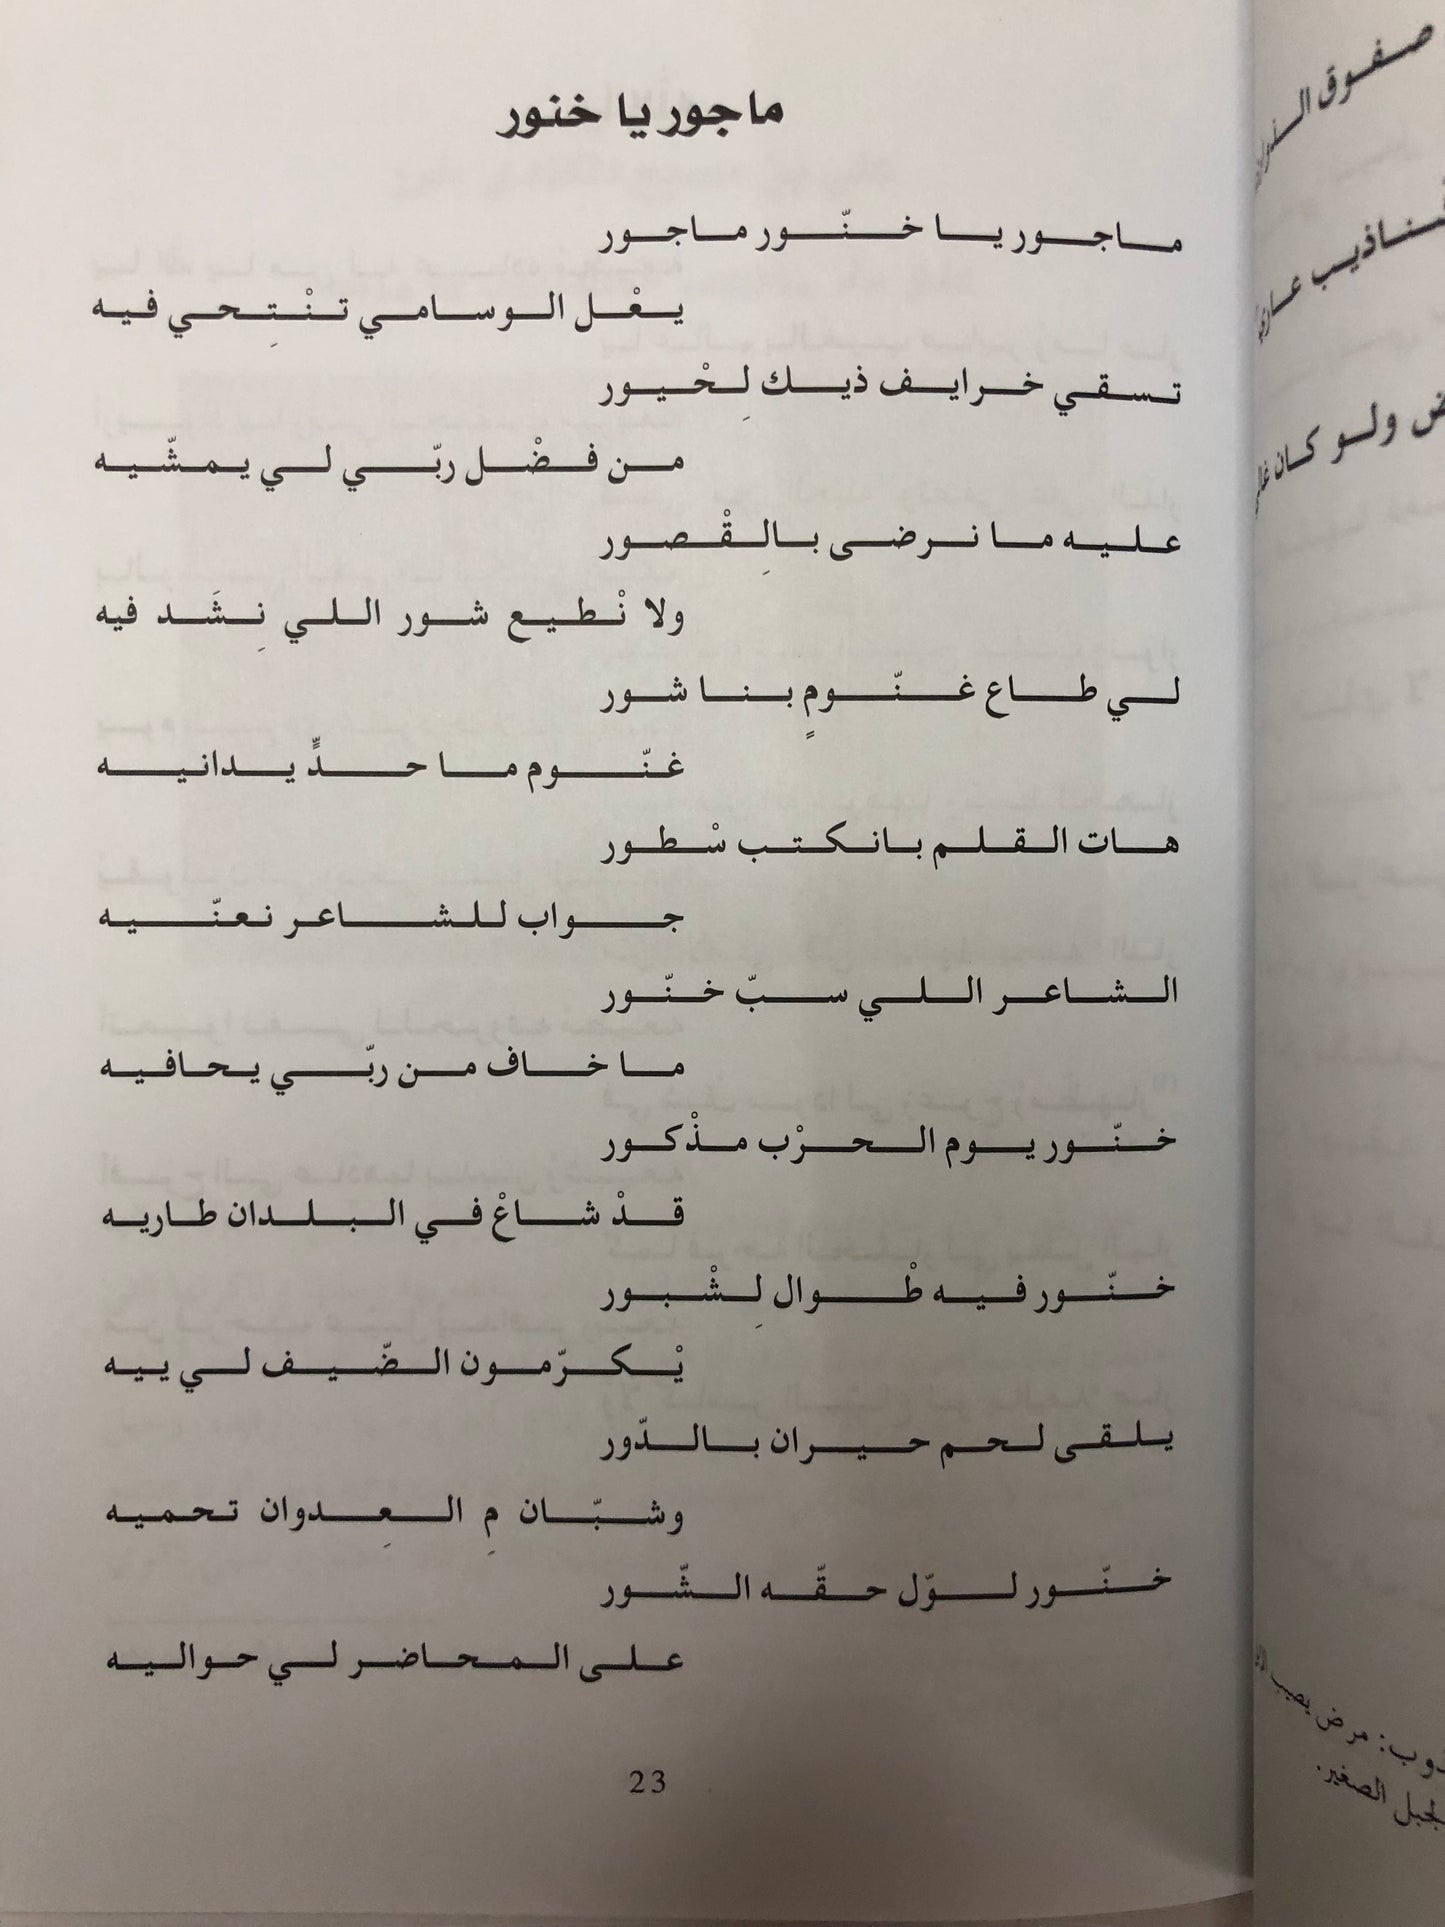 ماجور يا خنور
ماجور يا خنّور ماجور
يعْل الوسامي تنْتِحي فيه
تسقي خرايف ذيك لِحْيور
من فضْل ربّي لي يمشّيه
عليه ما نرضى بالِقْصور
ولا نْطيع شور اللي نِشَد فيه
لي طاع غنّومٍ بنا شور
غنّوم ما حدٍّ يدانيه
هات القلم بانكتب سْطور
جواب للشاعر نعنّيه
الشاعر اللي سبّ خنّور
ما خاف من ربّي يحافيه
خنّور يوم الحرْب مذْكور
قدْ شاعْ في البلدان طاريه
خنّور فيه طْوال لِشْبور
يْكرّمون الضّيف لي ييه
يلقى لحم حيران بالدّور
وشبّان مِ العِدوان تحميه
خنّور لوّل حقّه الشّور
على المحاضر لي حواليه
23
صفوق
عاري
ض ولو كان
وب: مرض يصيب
لجبل الصغير.